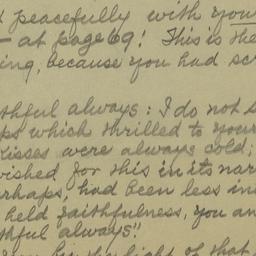 peacefully with you
– at page 69! This is the
ing, because you had sc
thful always: I do not s
ps which thrilled to your
kisses were always cold;
ished for this in its nar
rhaps, had been less in
held faithfulness, you an
thful always!!
light of that